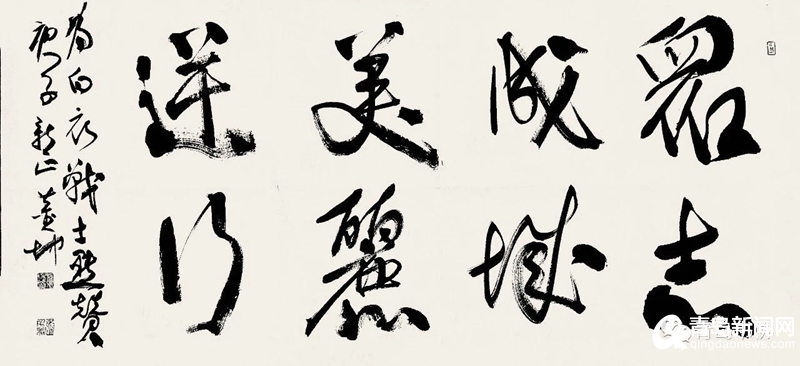 眾志
成城
美麗
逆行
為白衣戰士點贊
庚子新正
青岛新闻网
qingdaonews.com